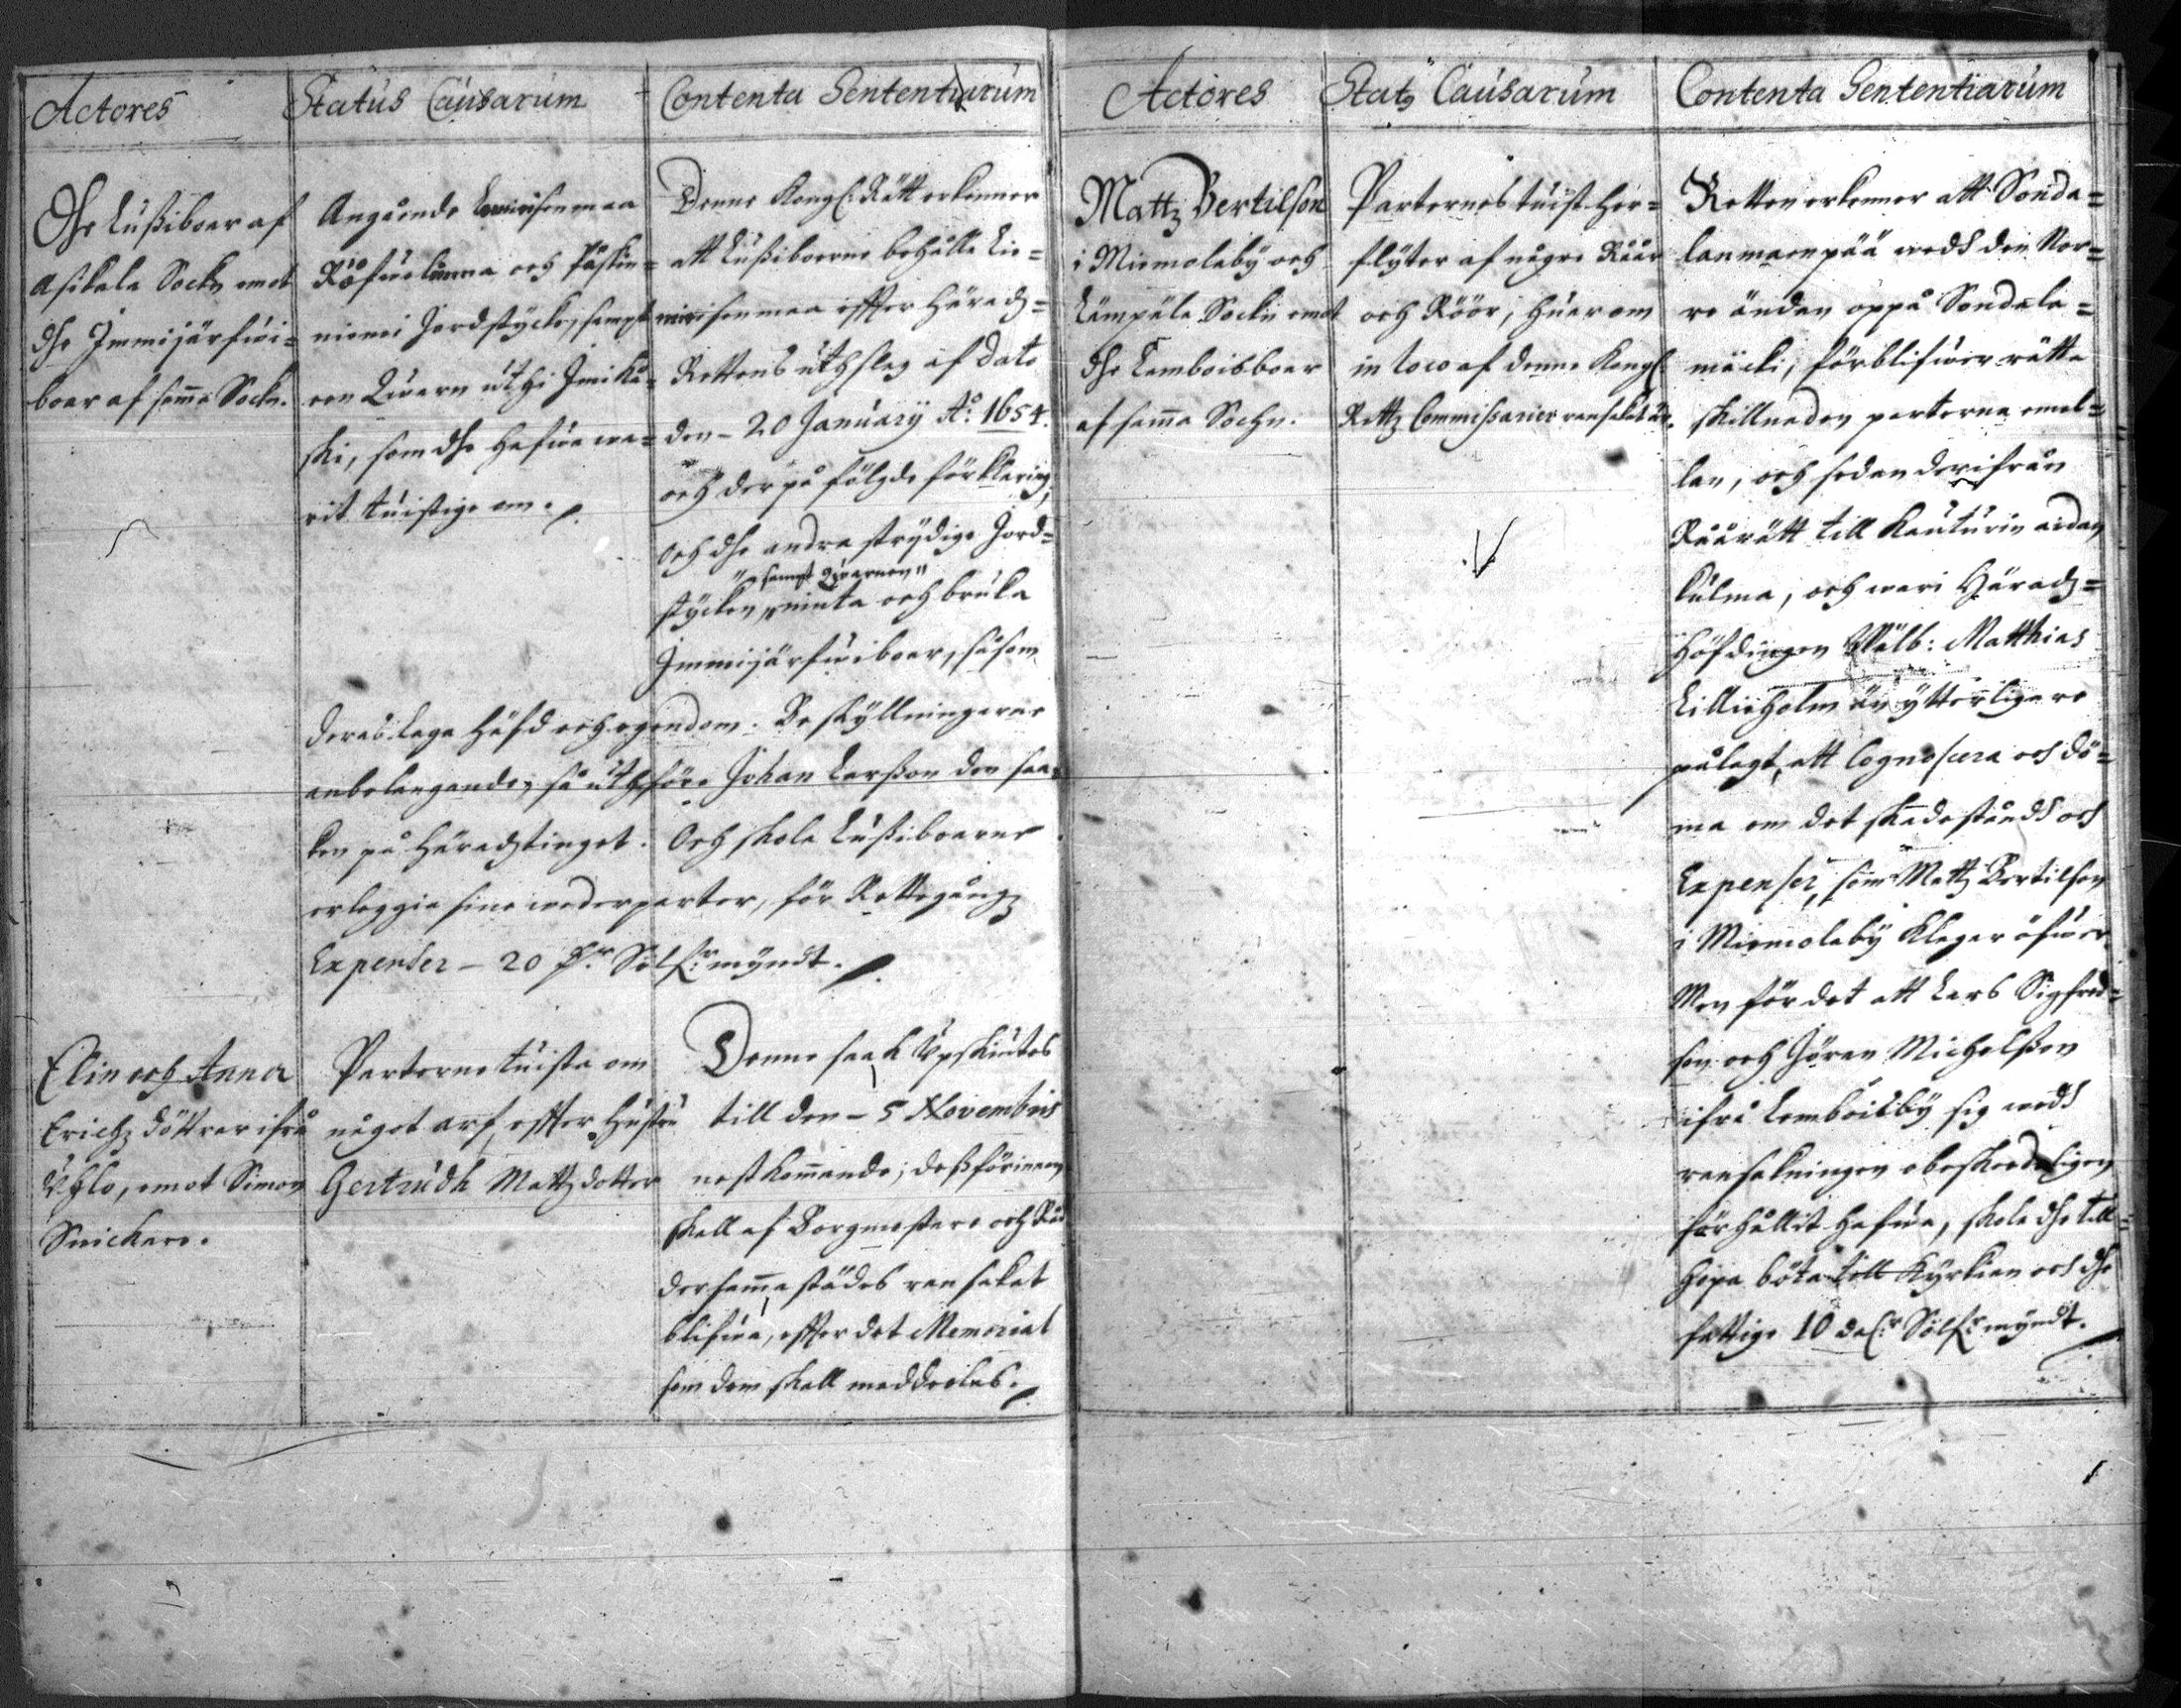 Actores
Status Causarum
Contenta Sententiarum
Dhe Lußiboer af
Asikala Sochn emot
dhe Immijärfwi=
boer af samma Sochn.
Angående
Röfwelunna och Påskin=
niemi Jordstycke, sampt
een Qwarn uthi Imikå=
ski, som dhe hafwa wa=
rit tuistige om.
Denne Kongl: Rätt erkenner
att Lußiboerne behålle Lie=
misenmaa effter Häradz=
Rettens uthslag af dato
den – 20 January A:o 1654.
och der på fölgde förklaring,
och dhe andra strydige Jord=
"sampt Qwarnen"
stycken, niuta och bruka
Immijärfwiboer, såsom
deras laga häfd och egendom. Beskyllningarne
anbelangande, så uthföre Johan Larßon den saa=
ken på Häradztinget. Och skole Lußiboerne
erleggia sine wederparter, för Rettegångz
Expenser – 20 Sölf:r myndt.
Elin och Anna
Erichz döttrar ifrå
Uhlo, emot Simon
Snickare.
Parterne tuista om
något arf effter Hustru
Gertrudh Mattz dotter
Denne saak Upskiutes
till den – 5 Novembris
nestkommande; deßförinnan
skall af Borgmestare och Råd
dersamma städes ransakat
blifwa, effter det Memorial
som dem skall meddeelas.
Actores
Stat9 Causarum
Contenta Sententiarum
Mattz Bertilson
i Miemolaby och
Lämpälä Sochn emot
dhe Lemboisboer
af samma Sochn.
Parternes tuist her=
flyter af någre Råår
och Röör, huar om
in loco af denne Kongl:
Rettz Commissarier ransakat är.
Retten erkenner att Sonda=
lanmaenpää wedh den Nor=
re ändan oppå Sondala=
mäcki, förblifwer rätta
skillnaden parterne emel=
lan, och sedan derifrån
Råårätt till Kauturin aidan
kulma, och wari Häradz=
höfdingen Wälb: Matthias
Lillieholm än ytterligare
pålagt, att Cognoscera och dö=
ma om det skadeståndh och
Expenser, som Mattz Bertilson
i Miemolaby klagar öfwer
Men för det att Lars Sigfred=
son och Jören Michelßon
ifrå Lemboisby sig wedh
ransakningen obeskedeligen
förhållit hafwa, skole dhe till=
hopa böta till Kyrkian och dhe
fattige 10 dal:r Sölf:r myndt.